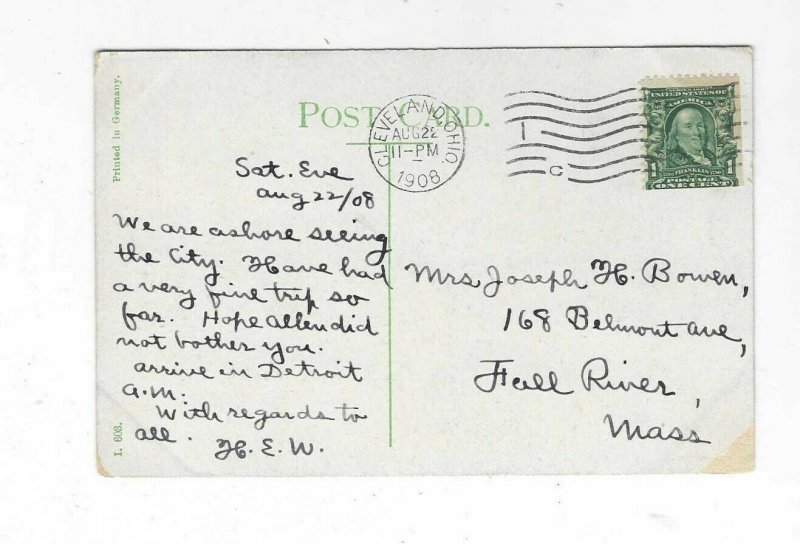 Printed in Germany.
POST CARD.
CLEVELAND, OHIO.
AUG 22
11-PM
1908
1
C
SERIES 1902
UNITED STATES OF
AMERICA
FRANKLIN
1 1
POSTAGE
ONE CENT
Sat. Eve
Aug 22/08
We are ashore seeing
the City. Have had
a very fine trip so
far. Hope Allen did
not bother you.
arrive in Detroit
a.m.
With regards to
all.
H. E. W.
Mrs Joseph H. Bowen,
168 Belmont ave,
Fall River,
Mass
I. 608.